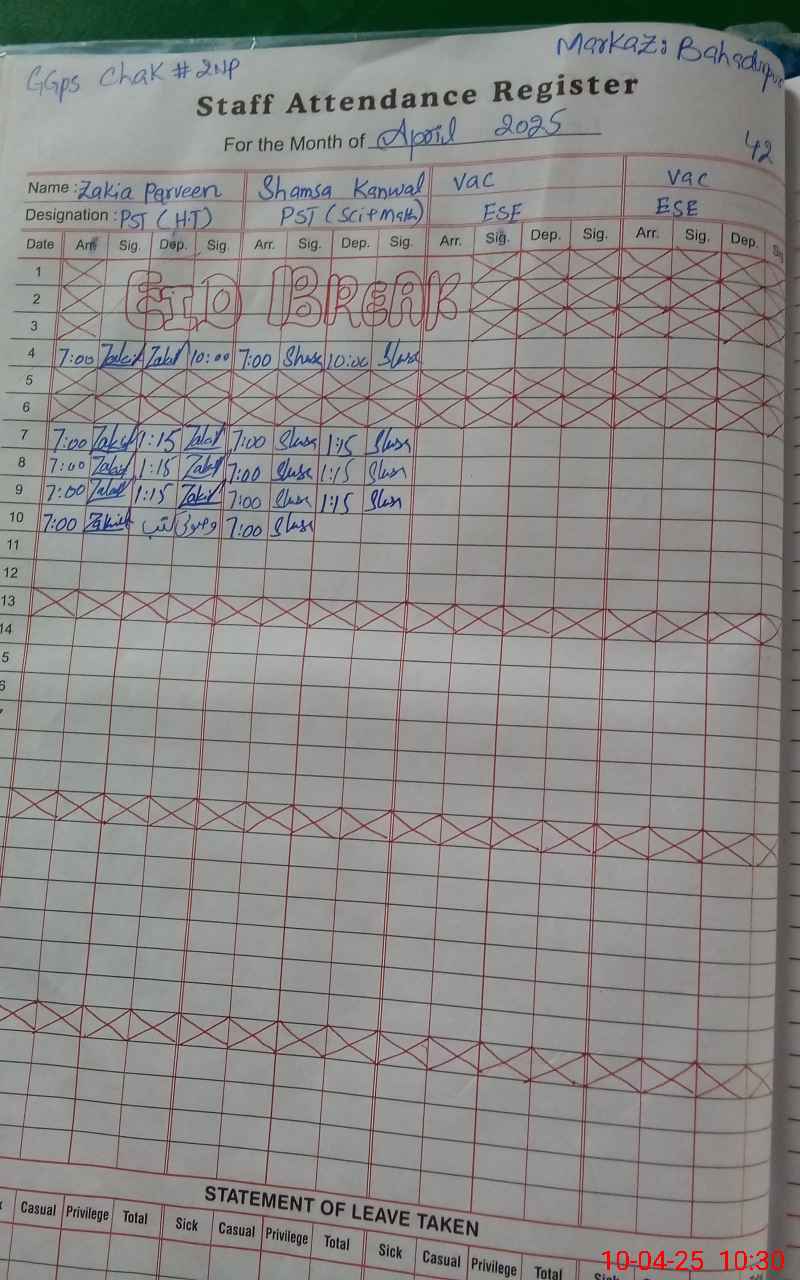 GGps Chak # 2NP
Markaz: Bahadurpur
Staff Attendance Register
For the Month of April 2025
42
Name : Zakia Parveen Shamsa Kanwal Vac Vac
Designation : PST (H.T) PST (Sci+Math) ESE ESE
Date Arr. Sig. Dep. Sig. Arr. Sig. Dep. Sig. Arr. Sig. Dep. Sig. Arr. Sig. Dep. Sig
1
2 EID BREAK
3
4 7:00 10:00 7:00 10:00
5
6
7 7:00 1:15 7:00 1:15
8 7:00 1:15 7:00 1:15
9 7:00 1:15 7:00 1:15
10 7:00 7:00
11
12
13
14
5
6
STATEMENT OF LEAVE TAKEN
Casual Privilege Total Sick Casual Privilege Total Sick Casual Privilege Total Sick
10-04-25 10:30